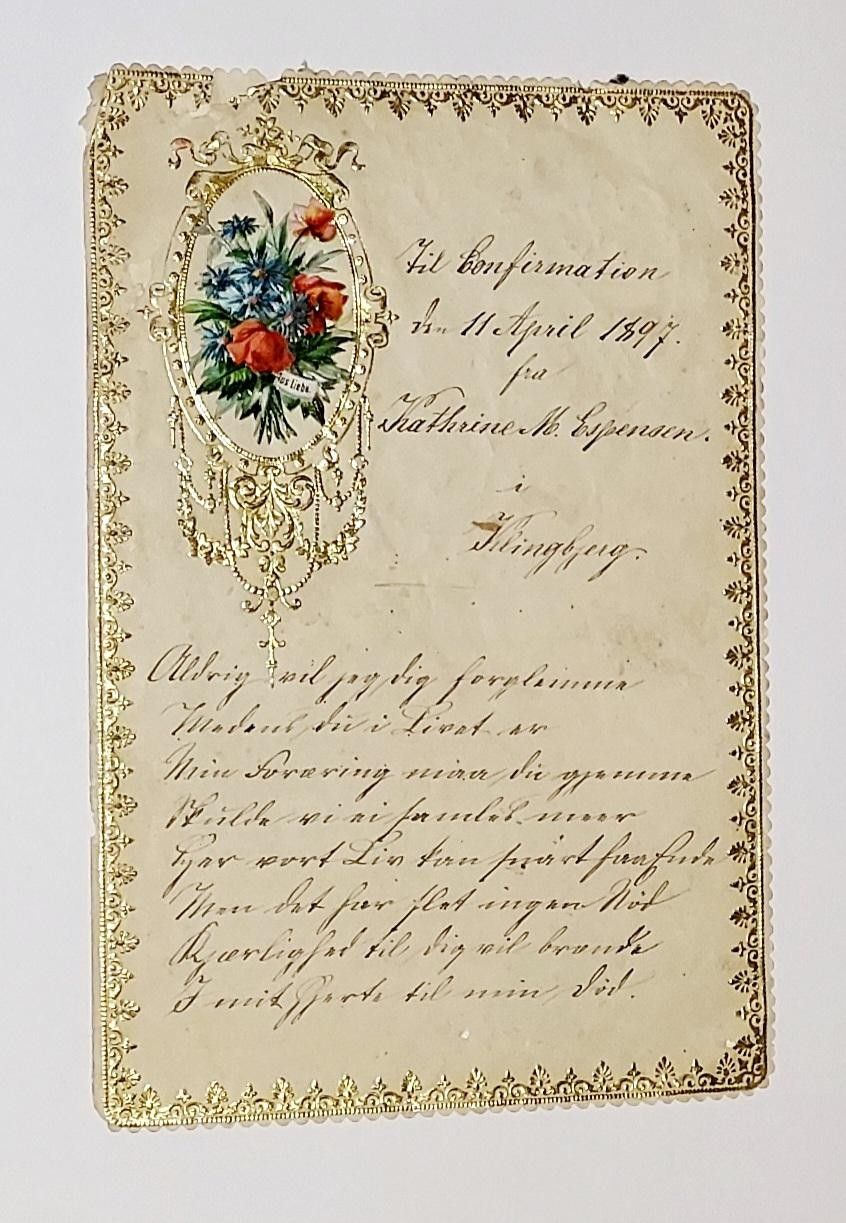 Til Confirmation
den 11 April 1897.
fra
Kathrine M. Espensen.
i
Klingbjerg.
Aus Liebe.
Aldrig vil jeg dig forgleimme
Medens du i Livet er
Min Foræring maa du gjemme
Skulde vi ei samles meer
Her vort Liv kan snart faa Ende
Men det har slet ingen Nød
Kjærlighed til dig vil brænde
I mit Hjerte til min Død.